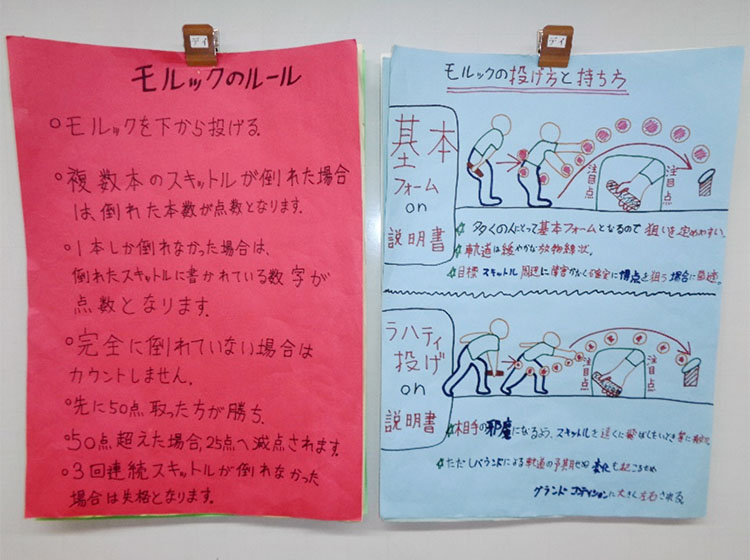 デイ
モルックのルール
○モルックを下から投げる.
○複数本のスキットルが倒れた場合
は、倒れた本数が点数となります.
○1本しか倒れなかった場合は、
倒れたスキットルに書かれている数字が
点数となります.
○完全に倒れていない場合は
カウントしません.
○先に50点取った方が勝ち.
○50点超えた場合,25点へ減点されます.
○3回連続スキットルが倒れなかった
場合は失格となります.
デイ
モルックの投げ方と持ち方
基本
フォーム
on
説明書
注目点
注目点
多くの人にとって基本フォームとなるので 狙いを定めやすい.
軌道は緩やかな放物線状.
目標スキットル周辺に障害がなく確実に得点を狙う場合に最適.
ラハティ
投げ
on
説明書
注目点
注目点
相手の邪魔になるよう、スキットルを遠くに飛ばしたいとき
ただしバウンドによる軌道の予期せぬ変化も起こるため
グランドコンディションに大きく左右される.